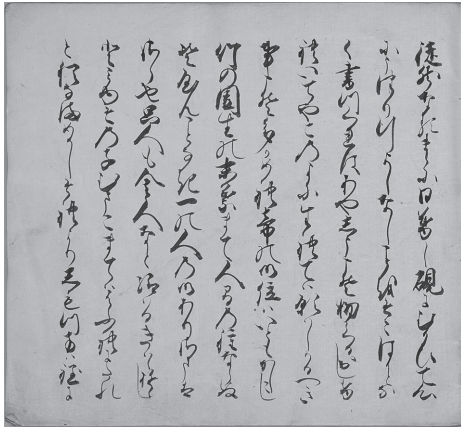 徒然なるまゝに日暮し硯にむかひて心
にうつりゆくよしなし事をそこはかとな
く書つくれはあやしうこそ物くるおしけ
れいてやこの世に生れては願しかるへき
事こそ多かめれ帝の御位はいともかしこし
竹の園生の末葉まて人間の種ならぬ
そやんことなき一の人の御ありさまは
さら也たゝ人も舎人なと給はるきはゝ
ゆゝしとみゆその子むまこまてははふれにたれ
と猶なまめかしそれより下つかたは程に